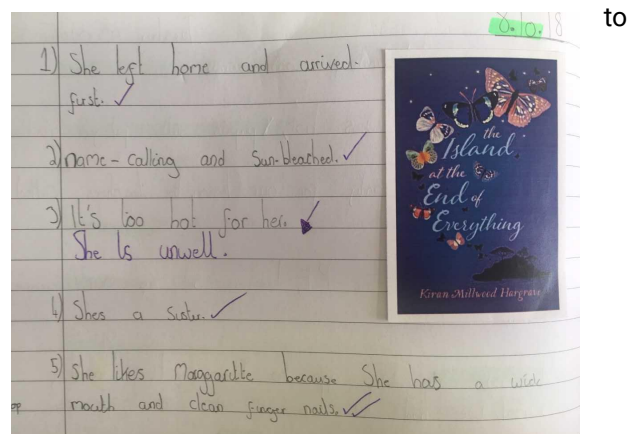 to
8.10.18
1) She left home and arrived.
first. ✓
2) name-calling and Sun-bleached. ✓
3) It's too hot for her. ✓
She Is unwell.
4) Shes a Sister. ✓
5) She likes Maggaritte because She has a wide
mouth and clean finger nails. ✓✓
the
Island
at the
End of
Everything
Kiran Millwood Hargrave